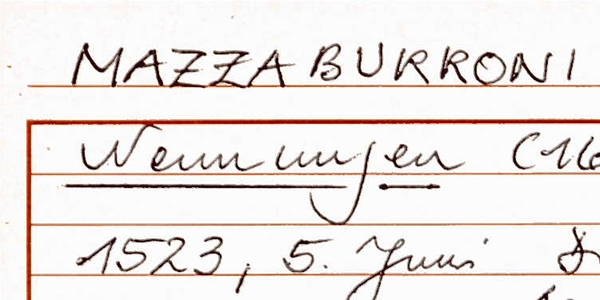 MAZZABURRONI
Nennungen (16
1523, 5. Juni